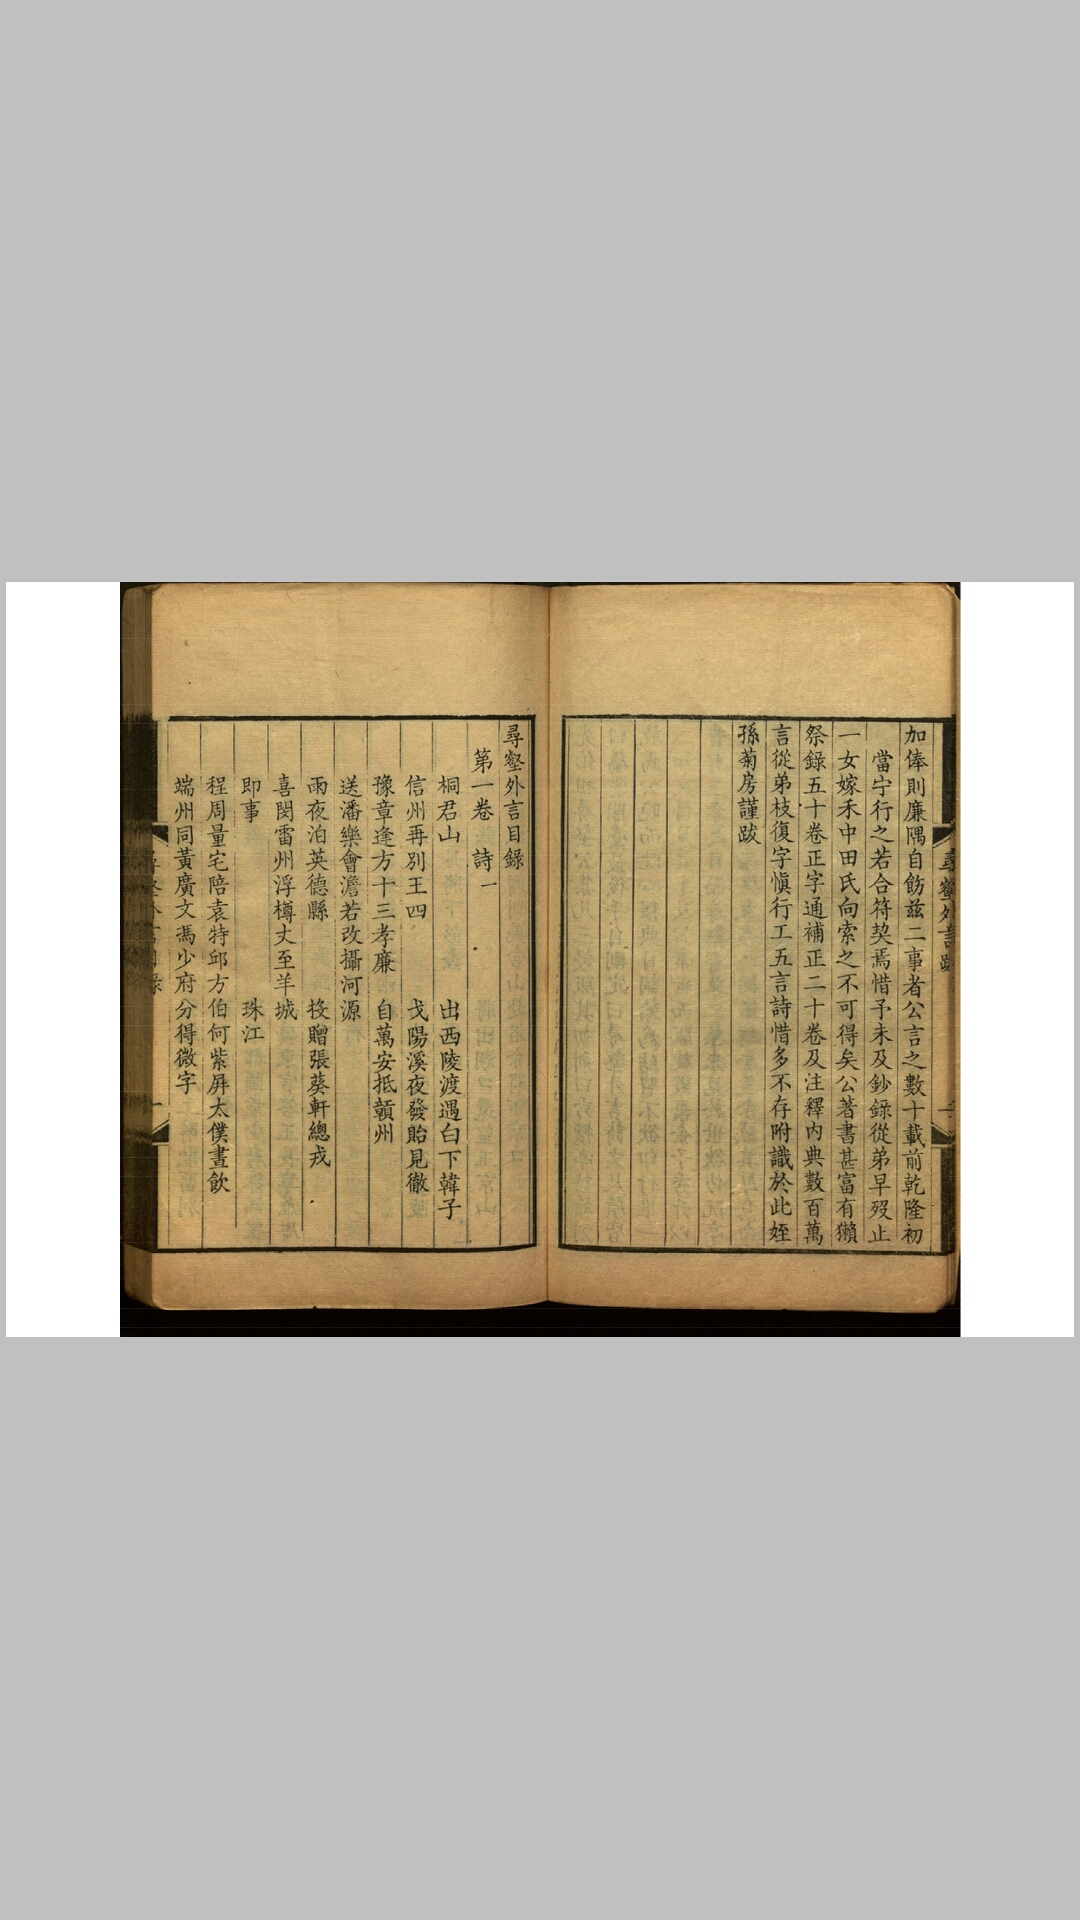 加俸則廉隅自飭茲二事者公言之數十載前乾隆初
當宁行之若合符契焉惜予未及鈔錄從弟早歿止
一女嫁禾中田氏向索之不可得矣公著書甚富有獺
祭錄五十卷正字通補正二十卷及注釋內典數百萬
言從弟枝復字愼行工五言詩惜多不存附識於此姪
孫菊房謹跋
尋壑外言目錄
第一卷 詩一
桐君山 出西陵渡遇白下韓子
信州再別王四 戈陽溪夜發貽見徹
豫章逢方十三孝廉 自萬安抵贛州
送潘樂會澹若改攝河源
雨夜泊英德縣 投贈張葵軒總戎
喜閔雷州浮樽丈至羊城
即事 珠江
程周量宅陪袁特邱方伯何紫屏太僕晝飲
端州同黃廣文馮少府分得微字